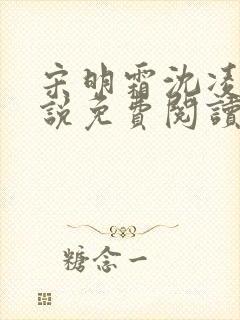 宋明霜沈凌
說免費閱讀
糖念一